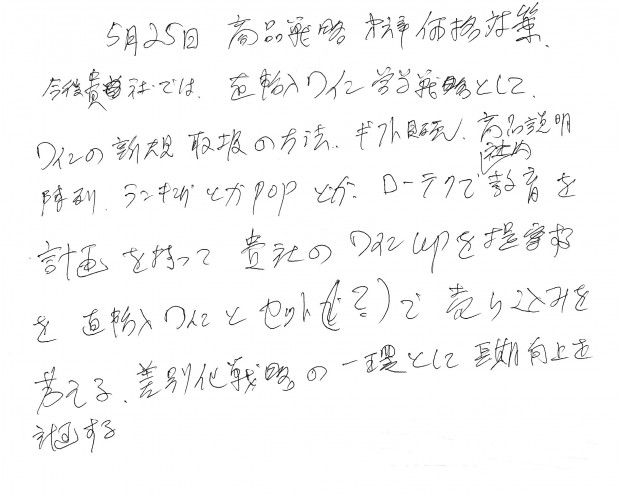 5月25日 商品戦略 標準価格対策、
今後貴社では、直輸入ワイン 戦略として、
ワインの新規取扱の方法、ギフト 、商品説明
陳列、ランキングとかPOPとか、ローテクで社内教育を
計画を持って 貴社のワインupを提案する
を直輸入ワインとセット(で?)で売り込みを
考える、差別化戦略の一環として長期向上を
計画する